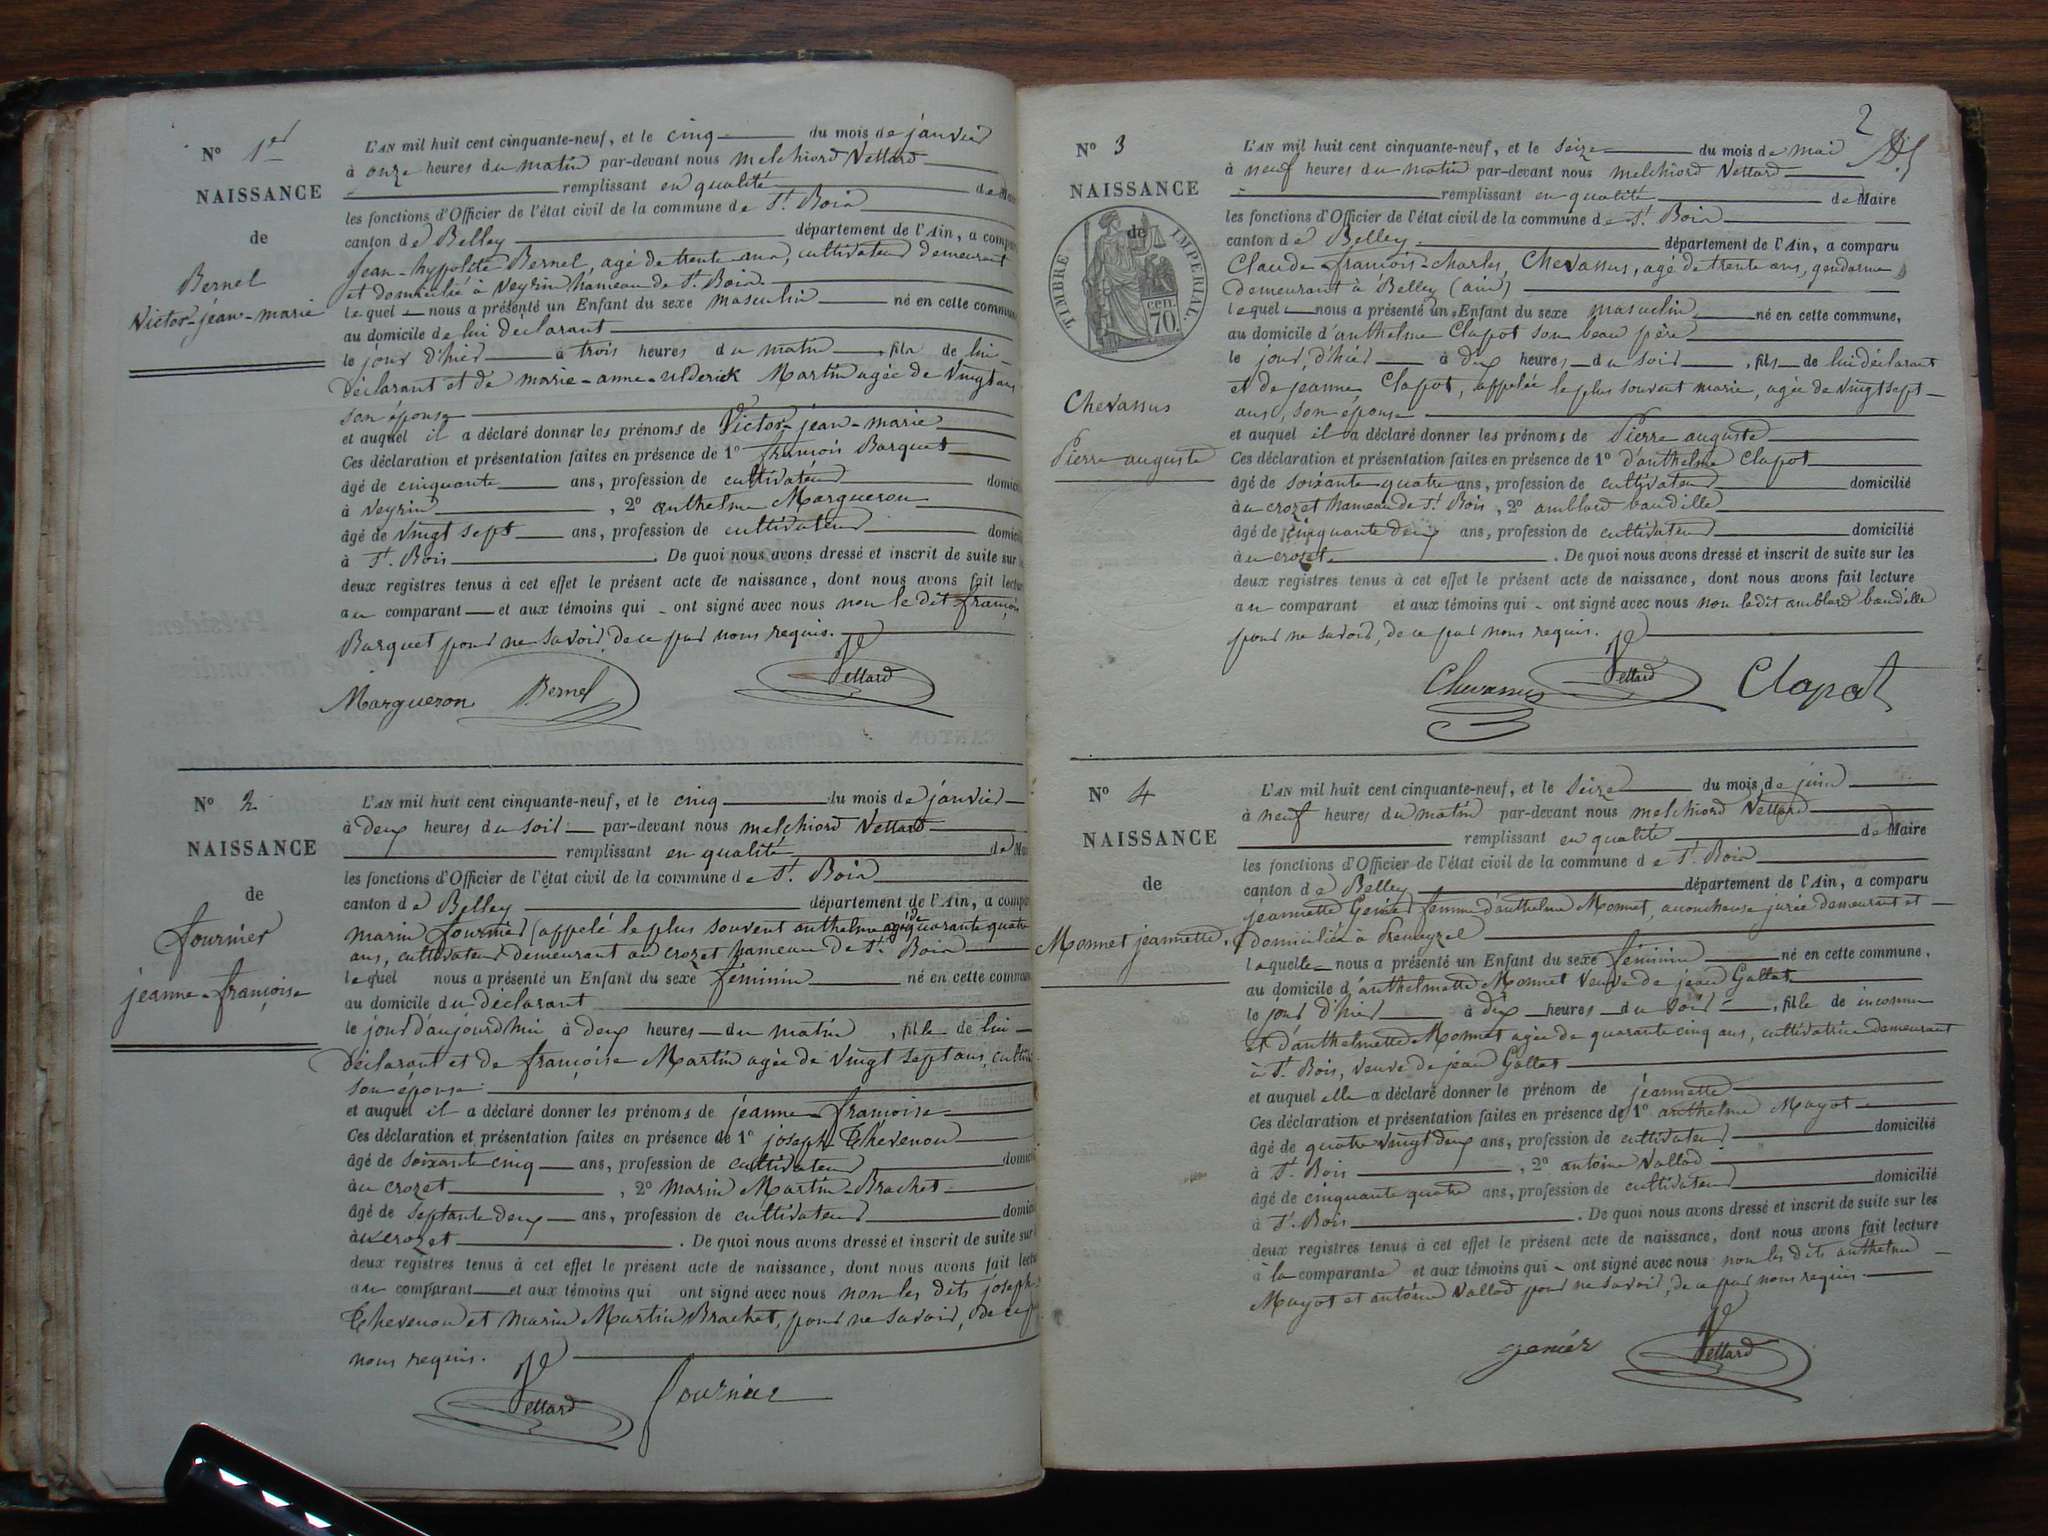 N° 1er
NAISSANCE
de
Bernel
Victor-jéan-marie
L'AN mil huit cent cinquante-neuf, et le cinq du mois de janvier
à onze heures du matin par-devant nous melchiord Vettard
remplissant en qualité de Maire
les fonctions d'Officier de l'état civil de la commune de St. Bois
canton de Belley département de l'Ain, a comparu
Jean-hypolite Bernel, agé de trente ans, cultivateur demeurant
et domicilié à Veyrin hameau de St. Bois.
lequel nous a présenté un Enfant du sexe masculin né en cette commune
au domicile de lui declarant
le jour d'hier à trois heures du matin, fils de lui
Déclarant et de marie-anne-ulderick Martin agée de Vingt ans
son épouse
et auquel il a déclaré donner les prénoms de Victor-jéan-marie
Ces déclaration et présentation faites en présence de 1° françois Barquet
âgé de cinquante ans, profession de cultivateur domicilié
à Veyrin, 2° anthelme Margueron
âgé de Vingt sept ans, profession de cultivateur domicilié
à St. Bois. De quoi nous avons dressé et inscrit de suite sur les
deux registres tenus à cet effet le présent acte de naissance, dont nous avons fait lecture
au comparant et aux témoins qui ont signé avec nous non le dit françois
Barquet pour ne savoir, de ce par nous requis.
Margueron Bernel Vettard
N° 2
NAISSANCE
de
fournier
jeanne-françoise
L'AN mil huit cent cinquante-neuf, et le cinq du mois de janvier
à deux heures du soir par-devant nous melchiord Vettard
remplissant en qualité de Maire
les fonctions d'Officier de l'état civil de la commune de St. Bois
canton de Belley département de l'Ain, a comparu
marin fournier (appelé le plus souvent anthelme agé de quarante quatre
ans, cultivateur demeurant au crozet hameau de St. Bois
lequel nous a présenté un Enfant du sexe féminin né en cette commune
au domicile du déclarant
le jour d'aujourd'hui à deux heures du matin, fille de lui
déclarant et de françoise Martin agée de Vingt sept ans, cultiv
son épouse
et auquel il a déclaré donner les prénoms de jeanne-françoise
Ces déclaration et présentation faites en présence de 1° joseph Thevenon
âgé de soixante cinq ans, profession de cultivateur domicilié
au crozet, 2° marin Martin-Brachet
âgé de septante deux ans, profession de cultivateur domicilié
au crozet. De quoi nous avons dressé et inscrit de suite sur
deux registres tenus à cet effet le présent acte de naissance, dont nous avons fait lecture
au comparant et aux témoins qui ont signé avec nous non les dits joseph
Thevenon et marin Martin Brachet, pour ne savoir, de ce par
nous requis.
Vettard fournier
2
N° 3
NAISSANCE
de
TIMBRE IMPERIAL.
70 cen.
Chevassus
Pierre auguste
L'AN mil huit cent cinquante-neuf, et le seize du mois de mai
à neuf heures du matin par-devant nous melchiord Vettard
remplissant en qualité de Maire
les fonctions d'Officier de l'état civil de la commune de St. Bois
canton de Belley département de l'Ain, a comparu
Claude-françois-charles, Chevassus, agé de trente ans, gendarme
demeurant à Belley (ain)
lequel nous a présenté un Enfant du sexe masculin né en cette commune,
au domicile d'anthelme Clapot son beau père
le jour d'hier à dix heures du soir, fils de lui déclarant
et de jeanne Clapot, appelée le plus souvent marie, agée de Vingt sept
ans, son épouse
et auquel il a déclaré donner les prénoms de Pierre auguste
Ces déclaration et présentation faites en présence de 1° d'anthelme Clapot
âgé de soixante-quatre ans, profession de cultivateur domicilié
au crozet hameau de St. Bois, 2° amblard baudille
âgé de cinquante deux ans, profession de cultivateur domicilié
au crozet. De quoi nous avons dressé et inscrit de suite sur les
deux registres tenus à cet effet le présent acte de naissance, dont nous avons fait lecture
au comparant et aux témoins qui ont signé avec nous non le dit amblard baudille
pour ne savoir, de ce par nous requis.
Chevassus Vettard Clapot
N° 4
NAISSANCE
de
Monnet jeannette.
L'AN mil huit cent cinquante-neuf, et le seize du mois de juin
à neuf heures du matin par-devant nous melchiord Vettard
remplissant en qualité de Maire
les fonctions d'Officier de l'état civil de la commune de St. Bois
canton de Belley département de l'Ain, a comparu
jeannette Geniér femme d'anthelme Monnet, accoucheuse jurée demeurant et
domiciliée à Premeyzel
laquelle nous a présenté un Enfant du sexe féminin né en cette commune,
au domicile d'anthelmette Monnet Veuve de jean Gallet
le jour d'hier à dix heures du soir, fille de inconnu
et d'anthelmette Monnet agée de quarante cinq ans, cultivatrice demeurant
à St. Bois, veuve de jean Gallet
et auquel elle a déclaré donner le prénom de jeannette
Ces déclaration et présentation faites en présence de 1° anthelme Mayot
âgé de quatre vingt deux ans, profession de cultivateur domicilié
à St. Bois, 2° antoine Vallod
âgé de cinquante quatre ans, profession de cultivateur domicilié
à St. Bois. De quoi nous avons dressé et inscrit de suite sur les
deux registres tenus à cet effet le présent acte de naissance, dont nous avons fait lecture
à la comparante et aux témoins qui ont signé avec nous non les dits anthelme
Mayot et antoine Vallod pour ne savoir, de ce par nous requis.
geniér Vettard